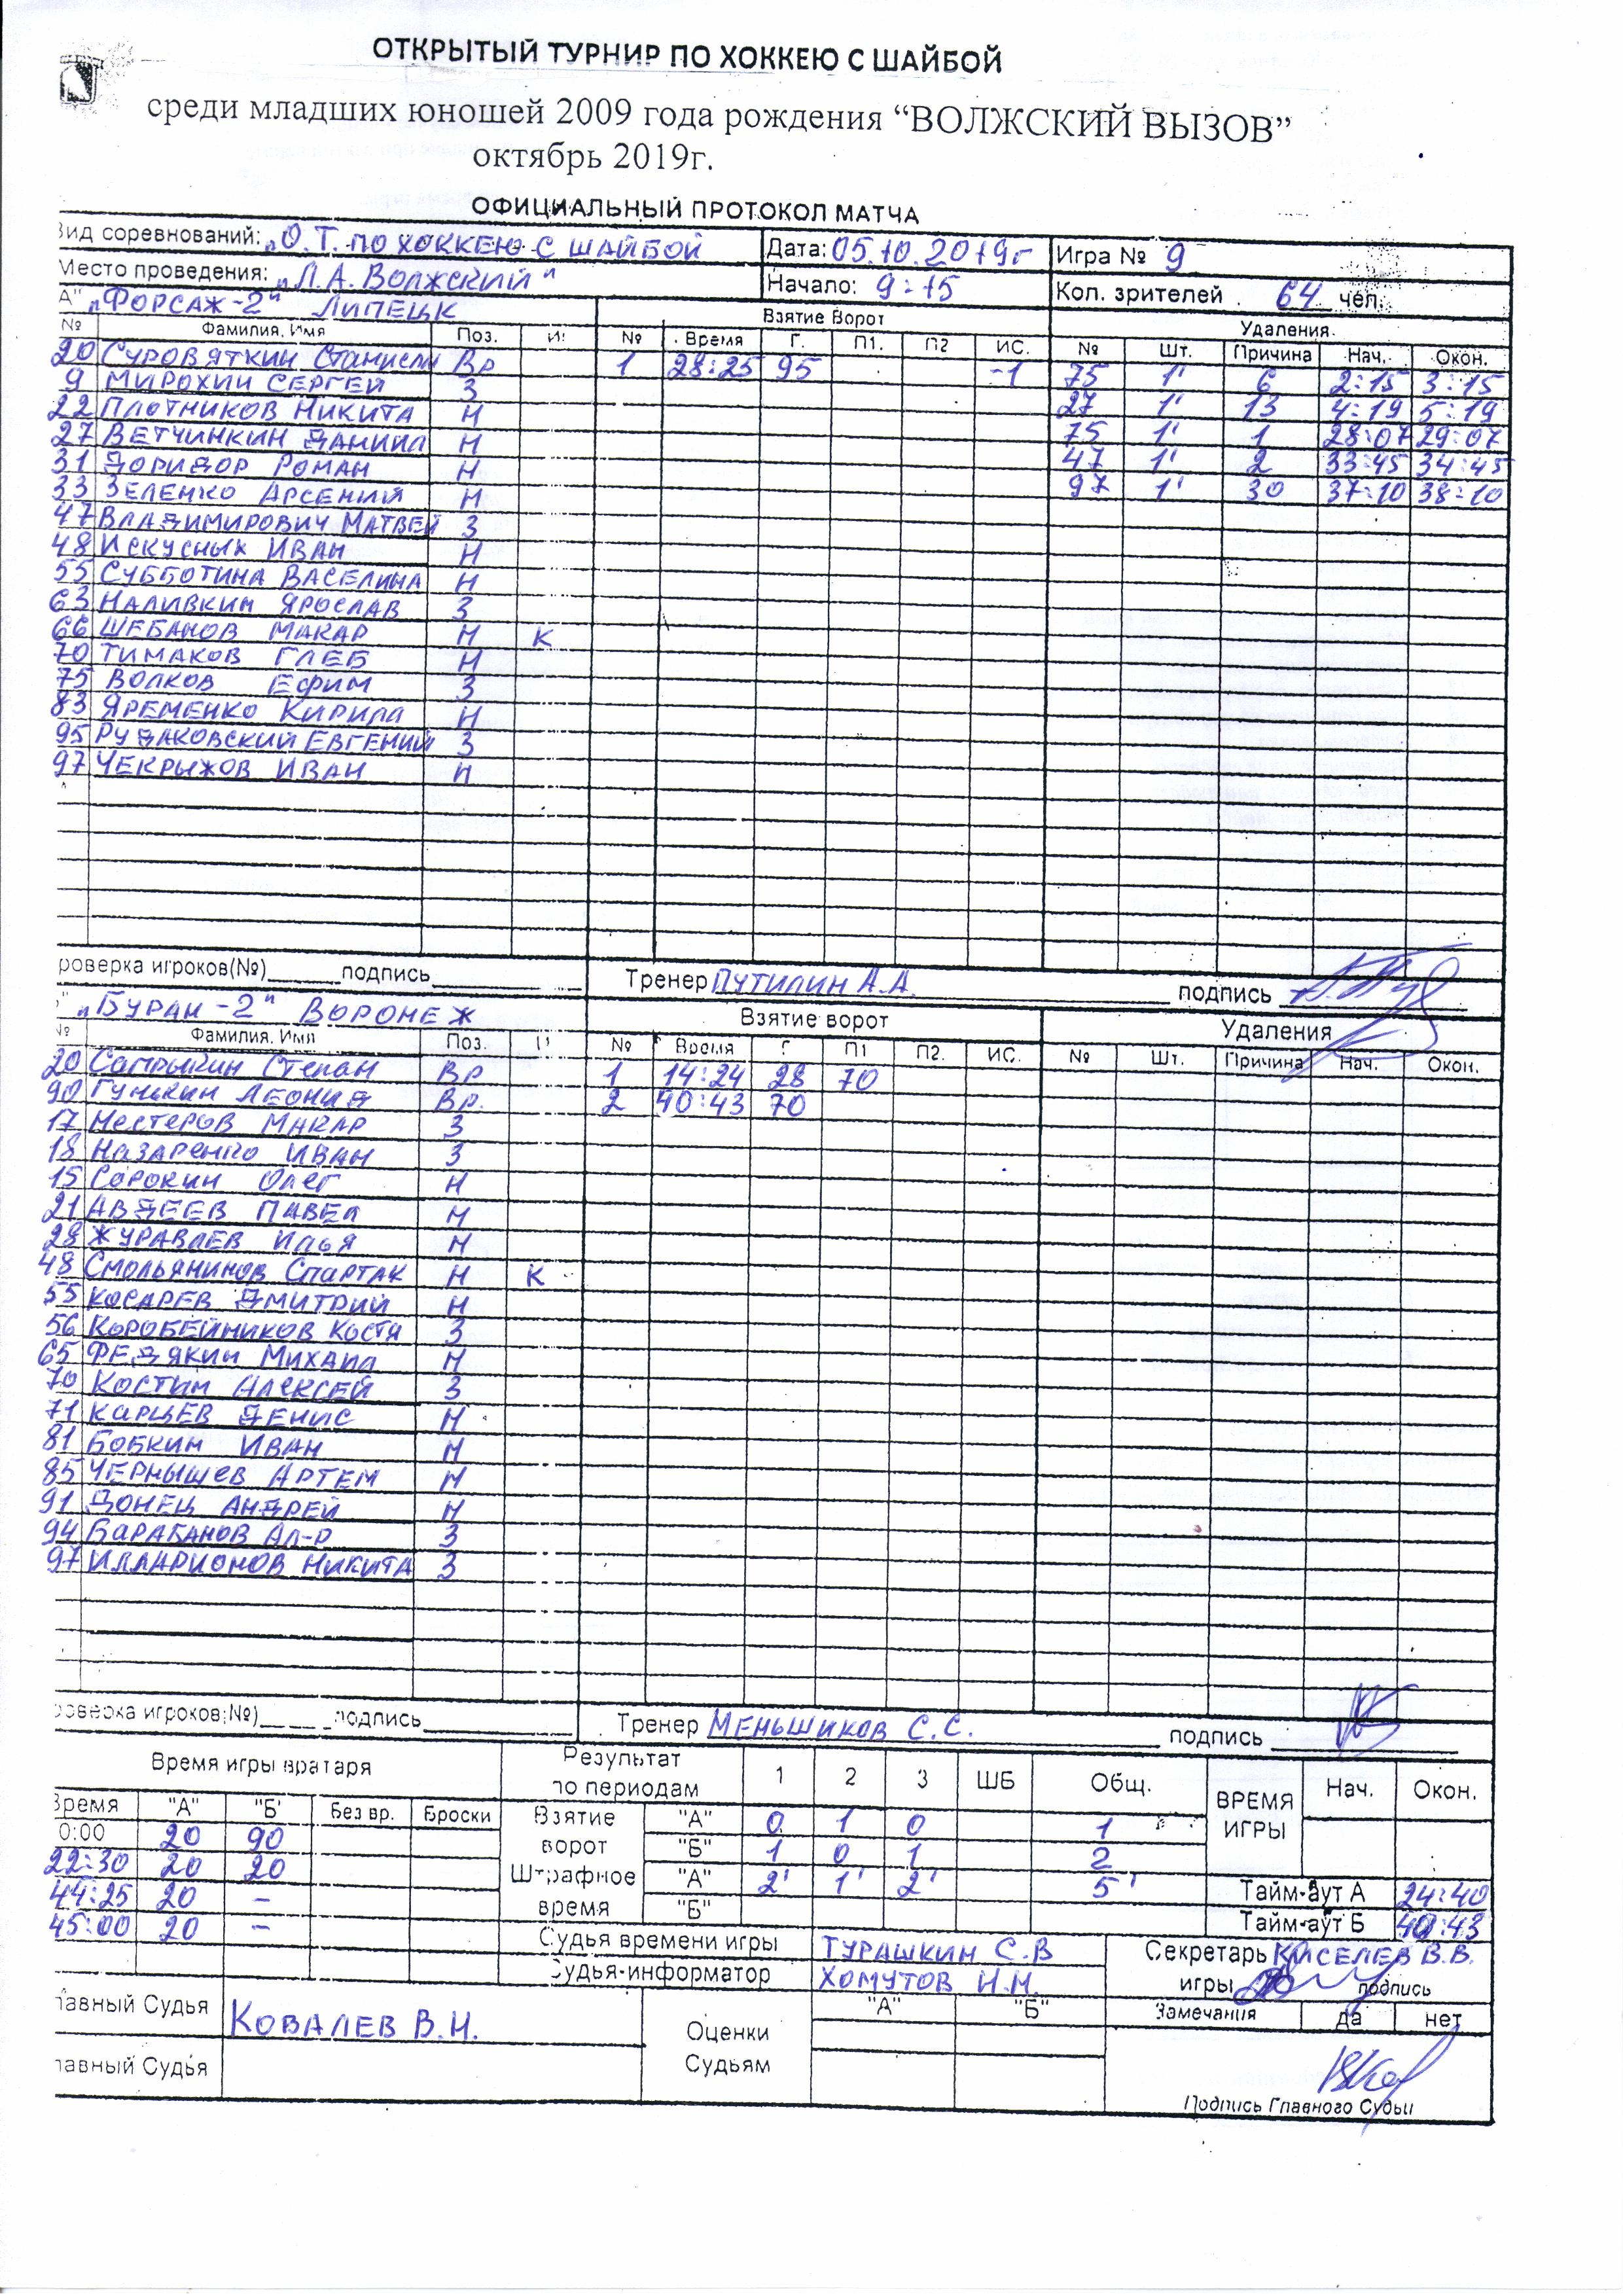 ОТКРЫТЫЙ ТУРНИР ПО ХОККЕЮ С ШАЙБОЙ
среди младших юношей 2009 года рождения “ВОЛЖСКИЙ ВЫЗОВ”
октябрь 2019г.
ОФИЦИАЛЬНЫЙ ПРОТОКОЛ МАТЧА
Вид соревнований: „О.Т. ПО ХОККЕЮ С ШАЙБОЙ Дата: 05.10.2019г Игра № 9
Место проведения: „Л.А. Волжский" Начало: 9:15 Кол. зрителей 64 чел.
А" „ФОРСАЖ-2" ЛИПЕЦК Взятие Ворот Удаления
№ Фамилия, Имя Поз. И № Время Г. П1. П2 ИС. № Шт. Причина Нач. Окон.
20 СУРОВЯТКИН Станислав Вр 1 28:25 95 -1 75 1' 6 2:15 3:15
9 МИРОХИН СЕРГЕЙ З 27 1' 13 4:19 5:19
22 ПЛОТНИКОВ НИКИТА Н 75 1' 1 28:07 29:07
27 ВЕТЧИНКИН ДАНИИЛ Н 47 1' 2 33:45 34:45
31 ДОРИДОР РОМАН Н 97 1' 30 37:10 38:10
33 ЗЕЛЕНКО АРСЕНИЙ Н
47 ВЛАДИМИРОВИЧ МАТВЕЙ З
48 ИСКУСНЫХ ИВАН Н
55 СУББОТИНА ВАСЕЛИНА Н
63 НАЛИВКИН ЯРОСЛАВ З
66 ШЕБАНОВ МАКАР Н К
70 ТИМАКОВ ГЛЕБ Н
75 ВОЛКОВ ЕФИМ З
83 ЯРЕМЕНКО КИРИЛЛ Н
95 РУДАКОВСКИЙ ЕВГЕНИЙ З
97 ЧЕКРЫЖОВ ИВАН Н
роверка игроков(№)______подпись______ Тренер ПУТИЛИН А.А. подпись
„БУРАН-2" ВОРОНЕЖ Взятие ворот Удаления
№ Фамилия, Имя Поз. И № Время Г П1 П2. ИС. № Шт. Причина Нач. Окон.
20 Сапрыкин Степан Вр 1 14:24 28 70
90 Гунькин Леонид Вр. 2 40:43 70
17 Нестеров Макар З
18 Назаренко Иван З
15 Сорокин Олег Н
21 АВДЕЕВ ПАВЕЛ Н
28 ЖУРАВЛЕВ ИЛЬЯ Н
48 Смольянинов Спартак Н К
55 КОСАРЕВ ДМИТРИЙ Н
56 КОРОБЕЙНИКОВ КОСТЯ З
65 ФЕДЯКИН МИХАИЛ Н
70 КОСТИН АЛЕКСЕЙ З
71 КАРЦЕВ ДЕНИС Н
81 БОБКИН ИВАН Н
85 ЧЕРНЫШЕВ АРТЕМ Н
91 ДОНЕЦ АНДРЕЙ Н
94 БАРАБАНОВ АЛ-Р З
97 ИЛЛАРИОНОВ НИКИТА З
роверка игроков(№)______подпись______ Тренер МЕНЬШИКОВ С.С. подпись
Время игры вратаря Результат по периодам 1 2 3 ШБ Общ. ВРЕМЯ ИГРЫ Нач. Окон.
Время "А" "Б" Без вр. Броски Взятие ворот "А" 0 1 0 1
0:00 20 90 "Б" 1 0 1 2
22:30 20 20 Штрафное время "А" 2' 1' 2' 5' Тайм-аут А 24:40
44:25 20 - "Б" Тайм-аут Б 40:43
45:00 20 - Судья времени игры ТУРАШКИН С.В Секретарь КИСЕЛЕВ В.В.
Судья-информатор ХОМУТОВ Н.Н. игры подпись
лавный Судья КОВАЛЕВ В.Н. Оценки Судьям "А" "Б" Замечания да нет
лавный Судья
Подпись Главного Судьи